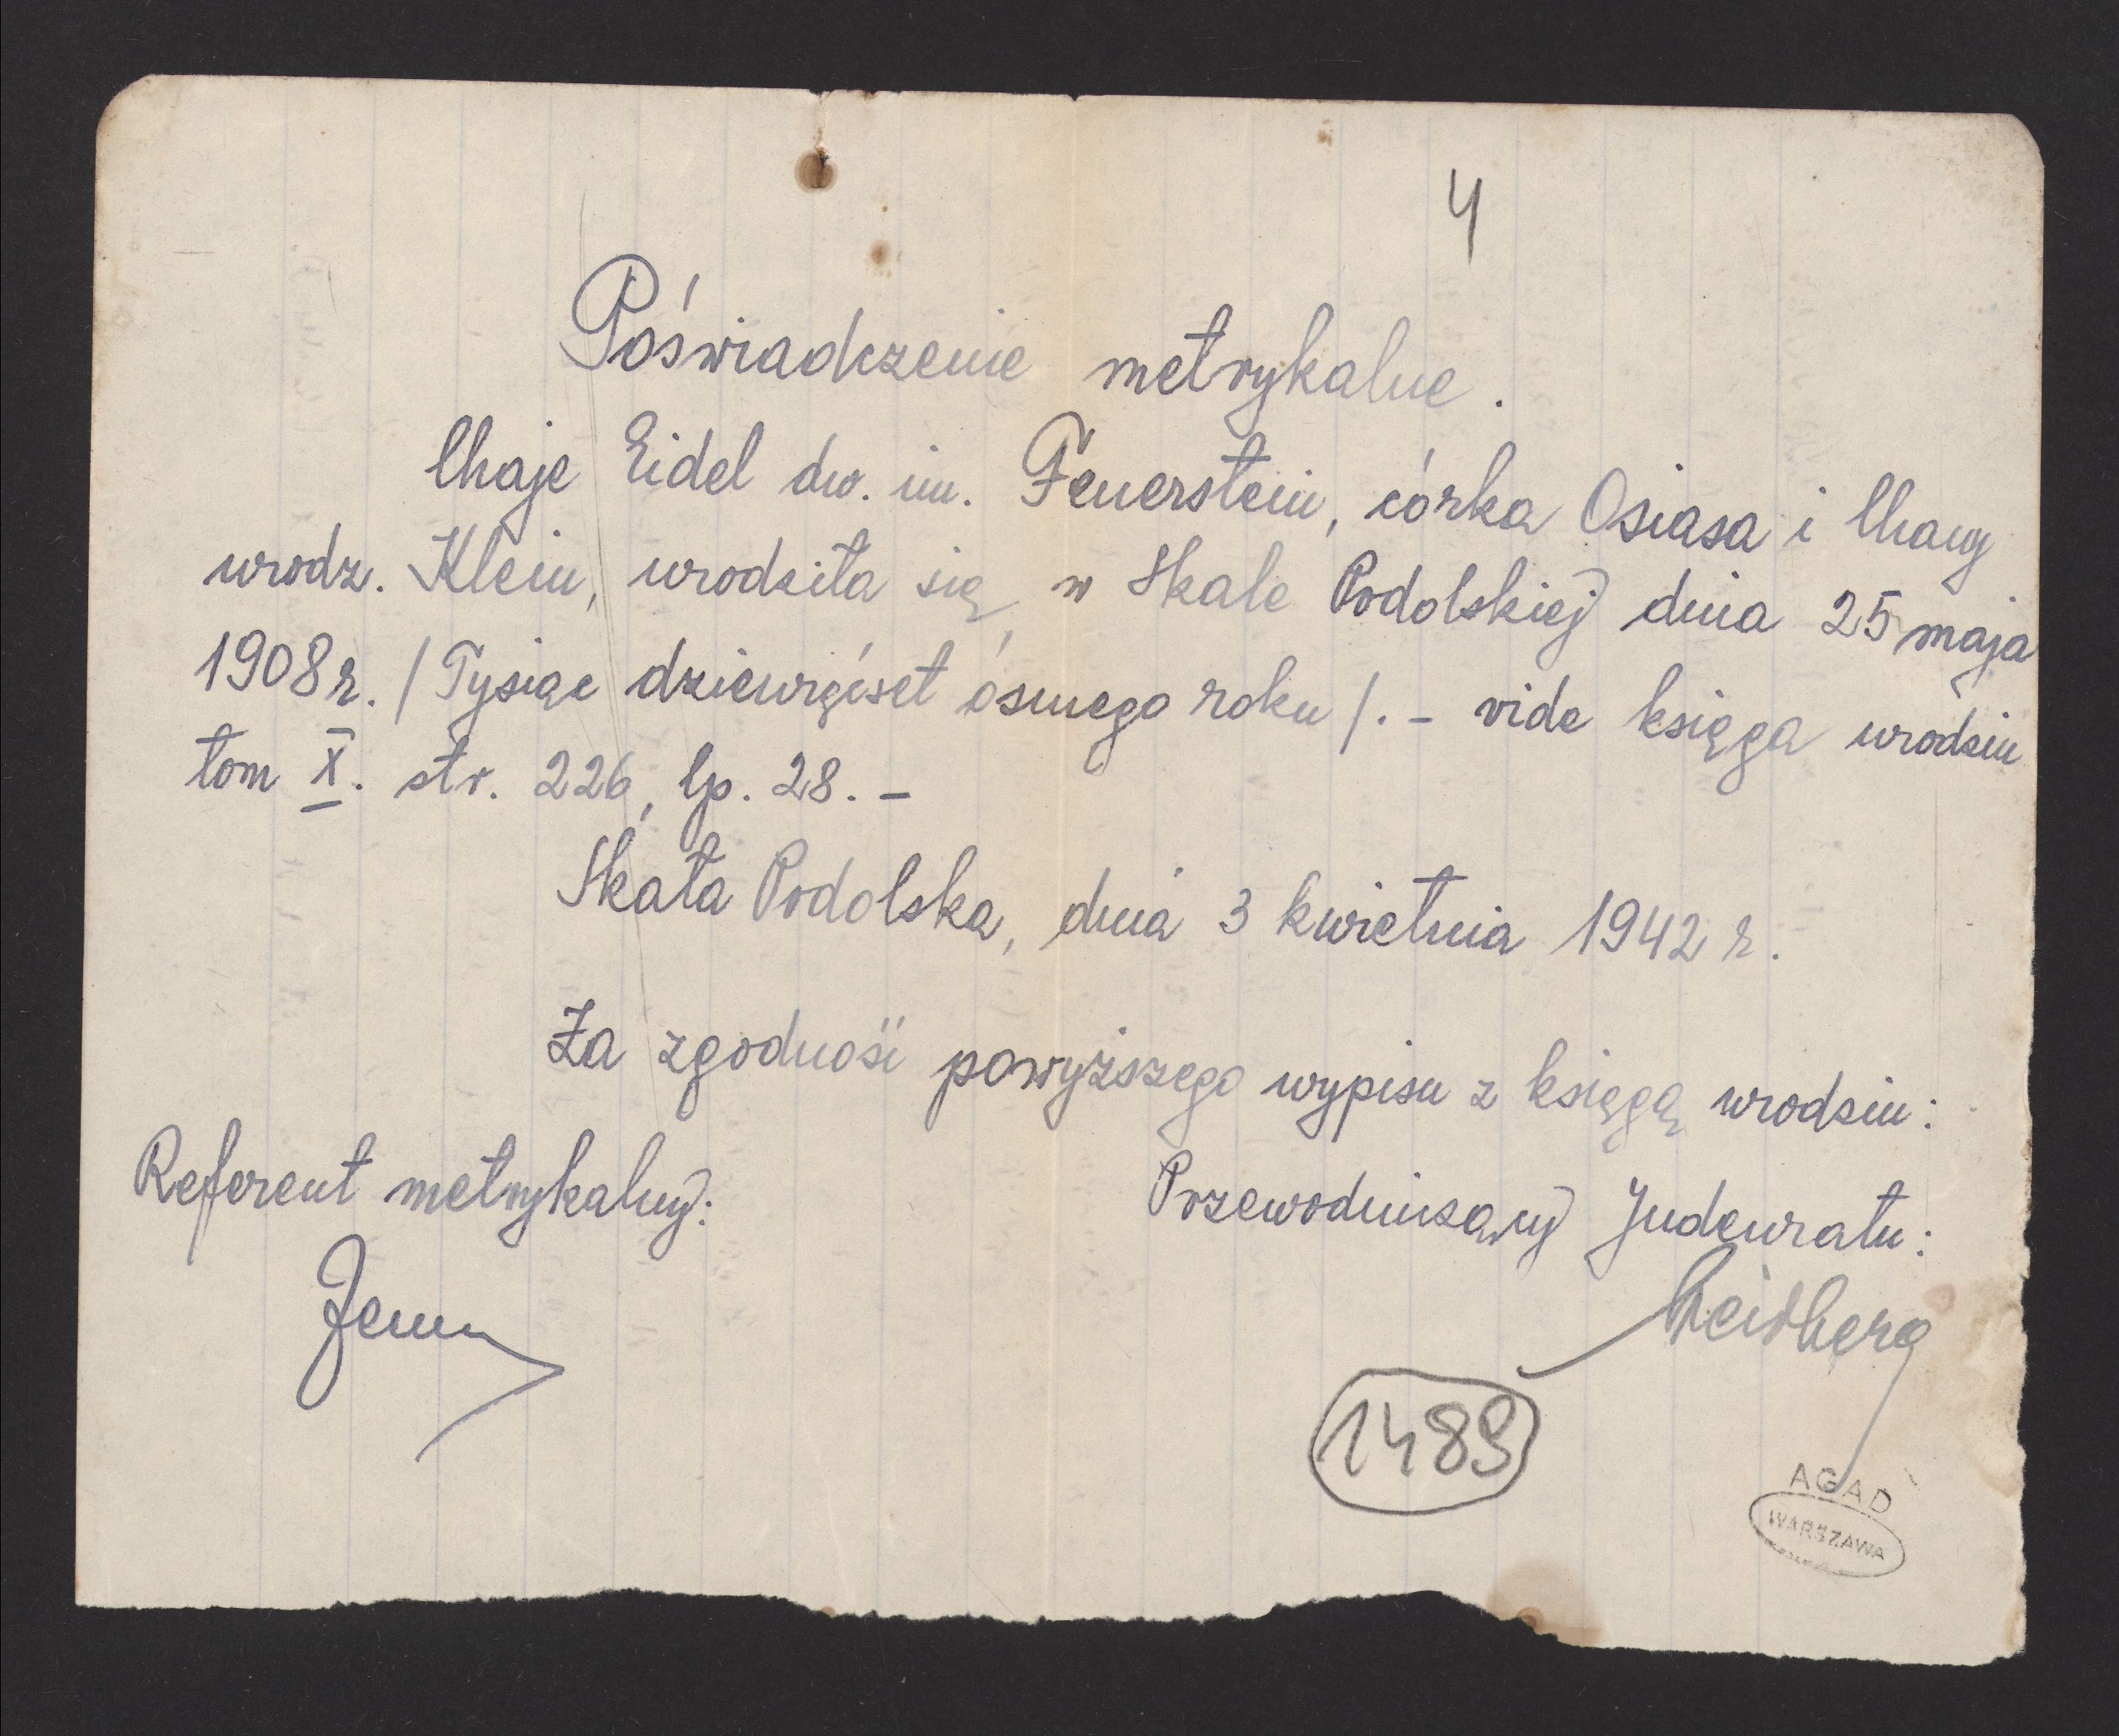 4
Poświadczenie metrykalne.
Chaje Eidel dw. im. Feuerstein, córka Osiasa i Chany
urodz. Klein, urodziła się w Skale Podolskiej dnia 25 maja
1908 r. / Tysiąc dziewięćset ósmego roku /. – vide księga urodzin
tom X. str. 226, lp. 28. –
Skała Podolska, dnia 3 kwietnia 1942 r.
Za zgodność powyższego wypisu z księgą urodzin:
Referent metrykalny: Przewodniczący Judenratu:
1489
AGAD
WARSZAWA